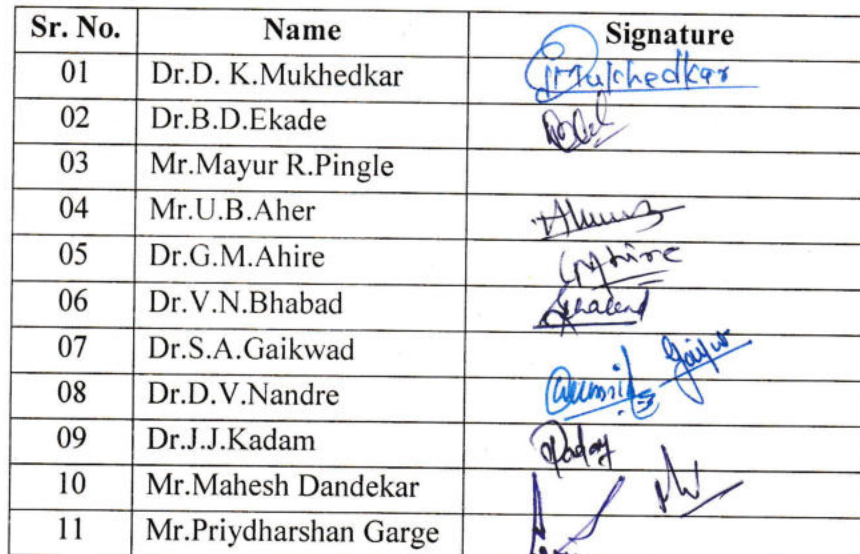 Sr. No. Name Signature
01 Dr.D. K.Mukhedkar Mukhedkar
02 Dr.B.D.Ekade
03 Mr.Mayur R.Pingle
04 Mr.U.B.Aher
05 Dr.G.M.Ahire GMAhire
06 Dr.V.N.Bhabad
07 Dr.S.A.Gaikwad
08 Dr.D.V.Nandre
09 Dr.J.J.Kadam
10 Mr.Mahesh Dandekar
11 Mr.Priydharshan Garge